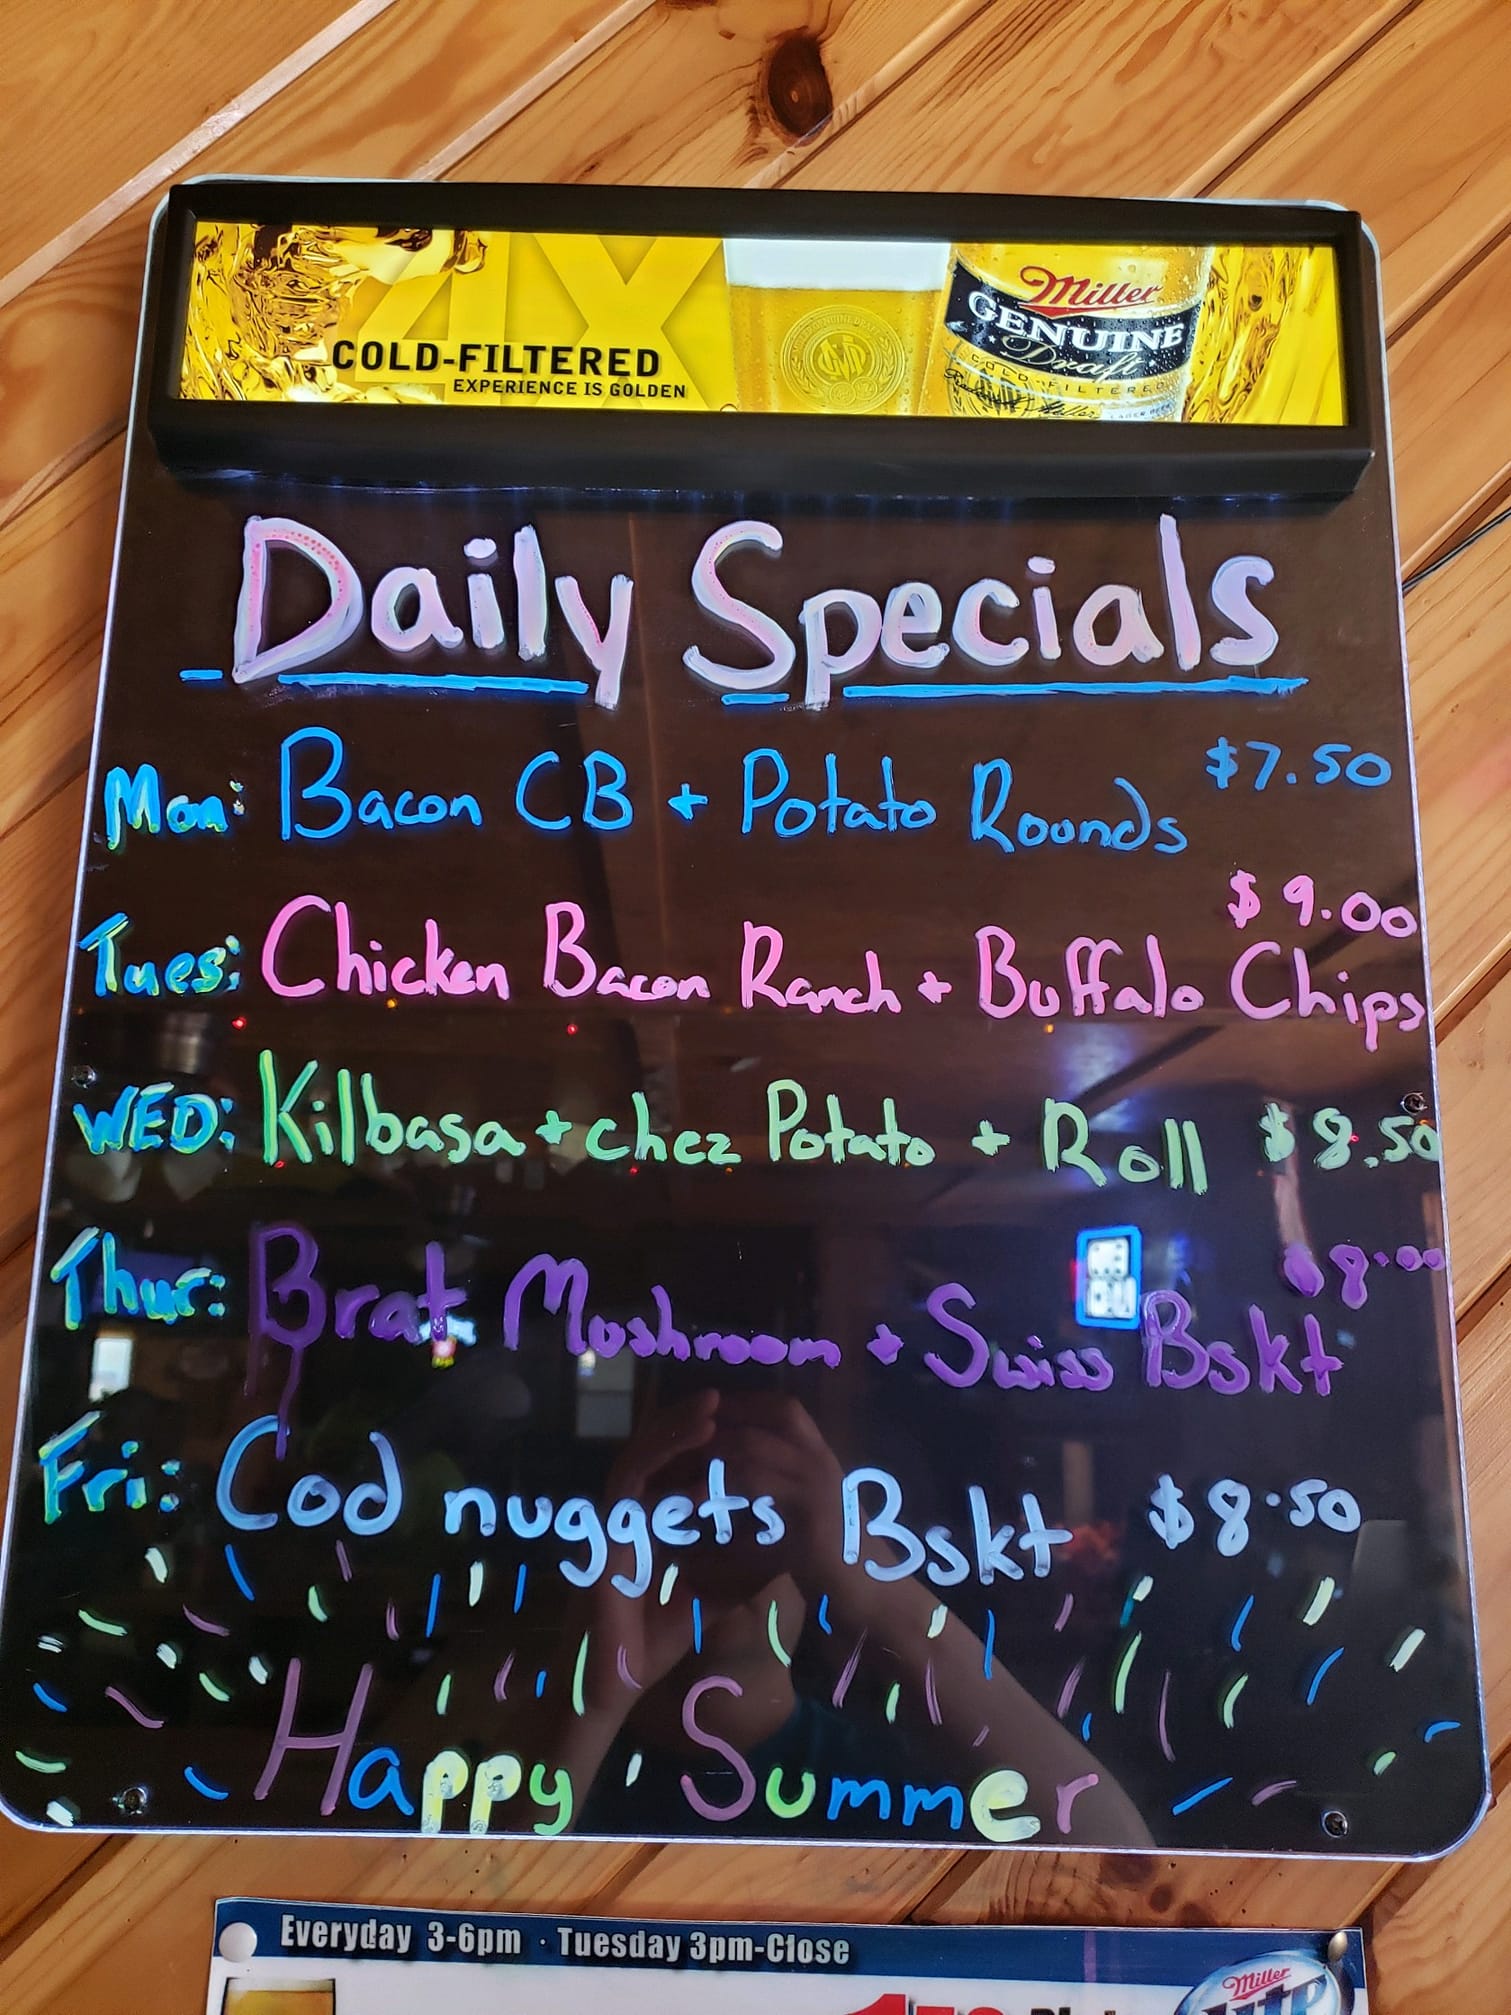 4X
COLD-FILTERED
EXPERIENCE IS GOLDEN
Miller
GENUINE
Draft
COLD-FILTERED
LAGER BEER
Daily Specials
Mon: Bacon CB + Potato Rounds $7.50
Tues: Chicken Bacon Ranch + Buffalo Chips $9.00
WED: Kilbasa + chez Potato + Roll $8.50
Thur: Brat Mushroom + Swiss Bskt $8.00
Fri: Cod nuggets Bskt $8.50
Happy Summer
Everyday 3-6pm · Tuesday 3pm-Close
Miller